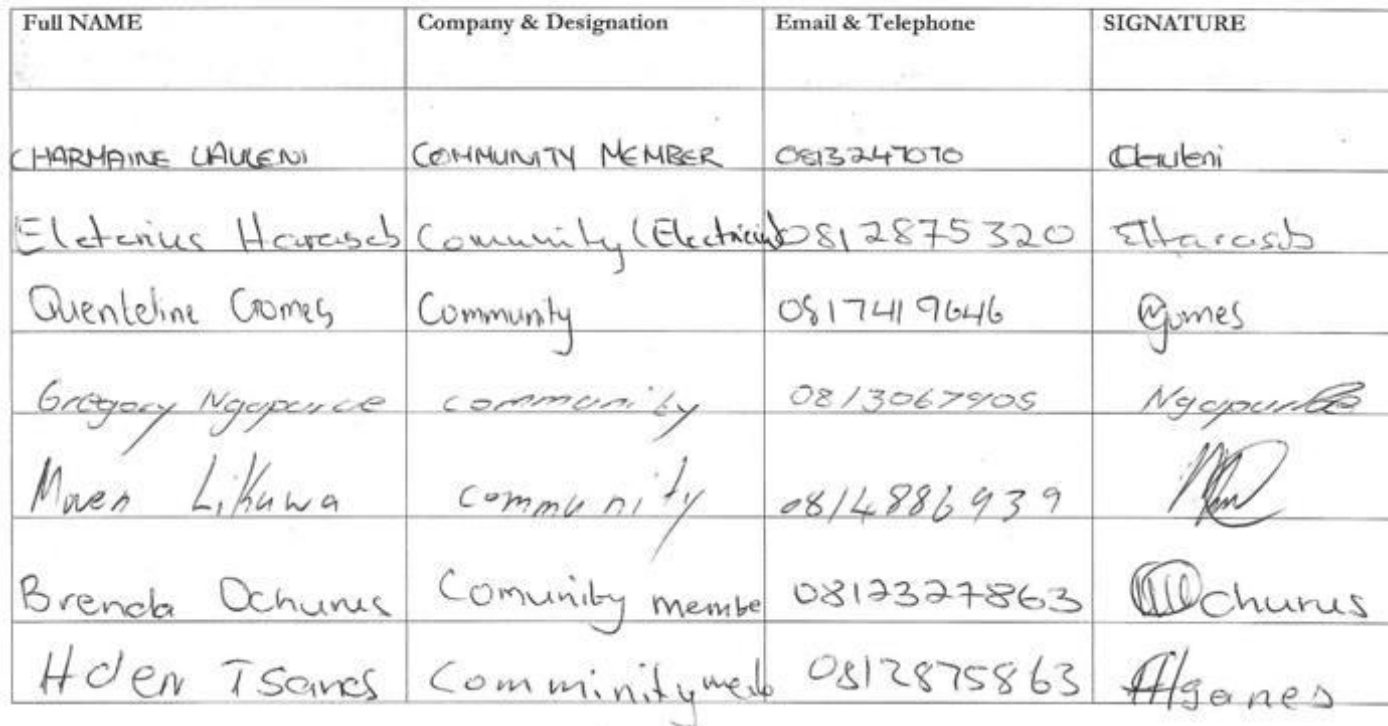 Full NAME Company & Designation Email & Telephone SIGNATURE
CHARMAINE LAULENI COMMUNITY MEMBER 0813247070 CLauleni
Eleterius Harases Comunity (Electrician) 0812875320 EHaraseb
Quenteline Gomes Community 0817419646 Qgomes
Gregory Ngapurue community 0813067905 Ngapurue
Moven Likuwa community 0814886939
Brenda Ochurus Comunity membe 0812327863 Ochurus
Tsanes Comminity 0812875863